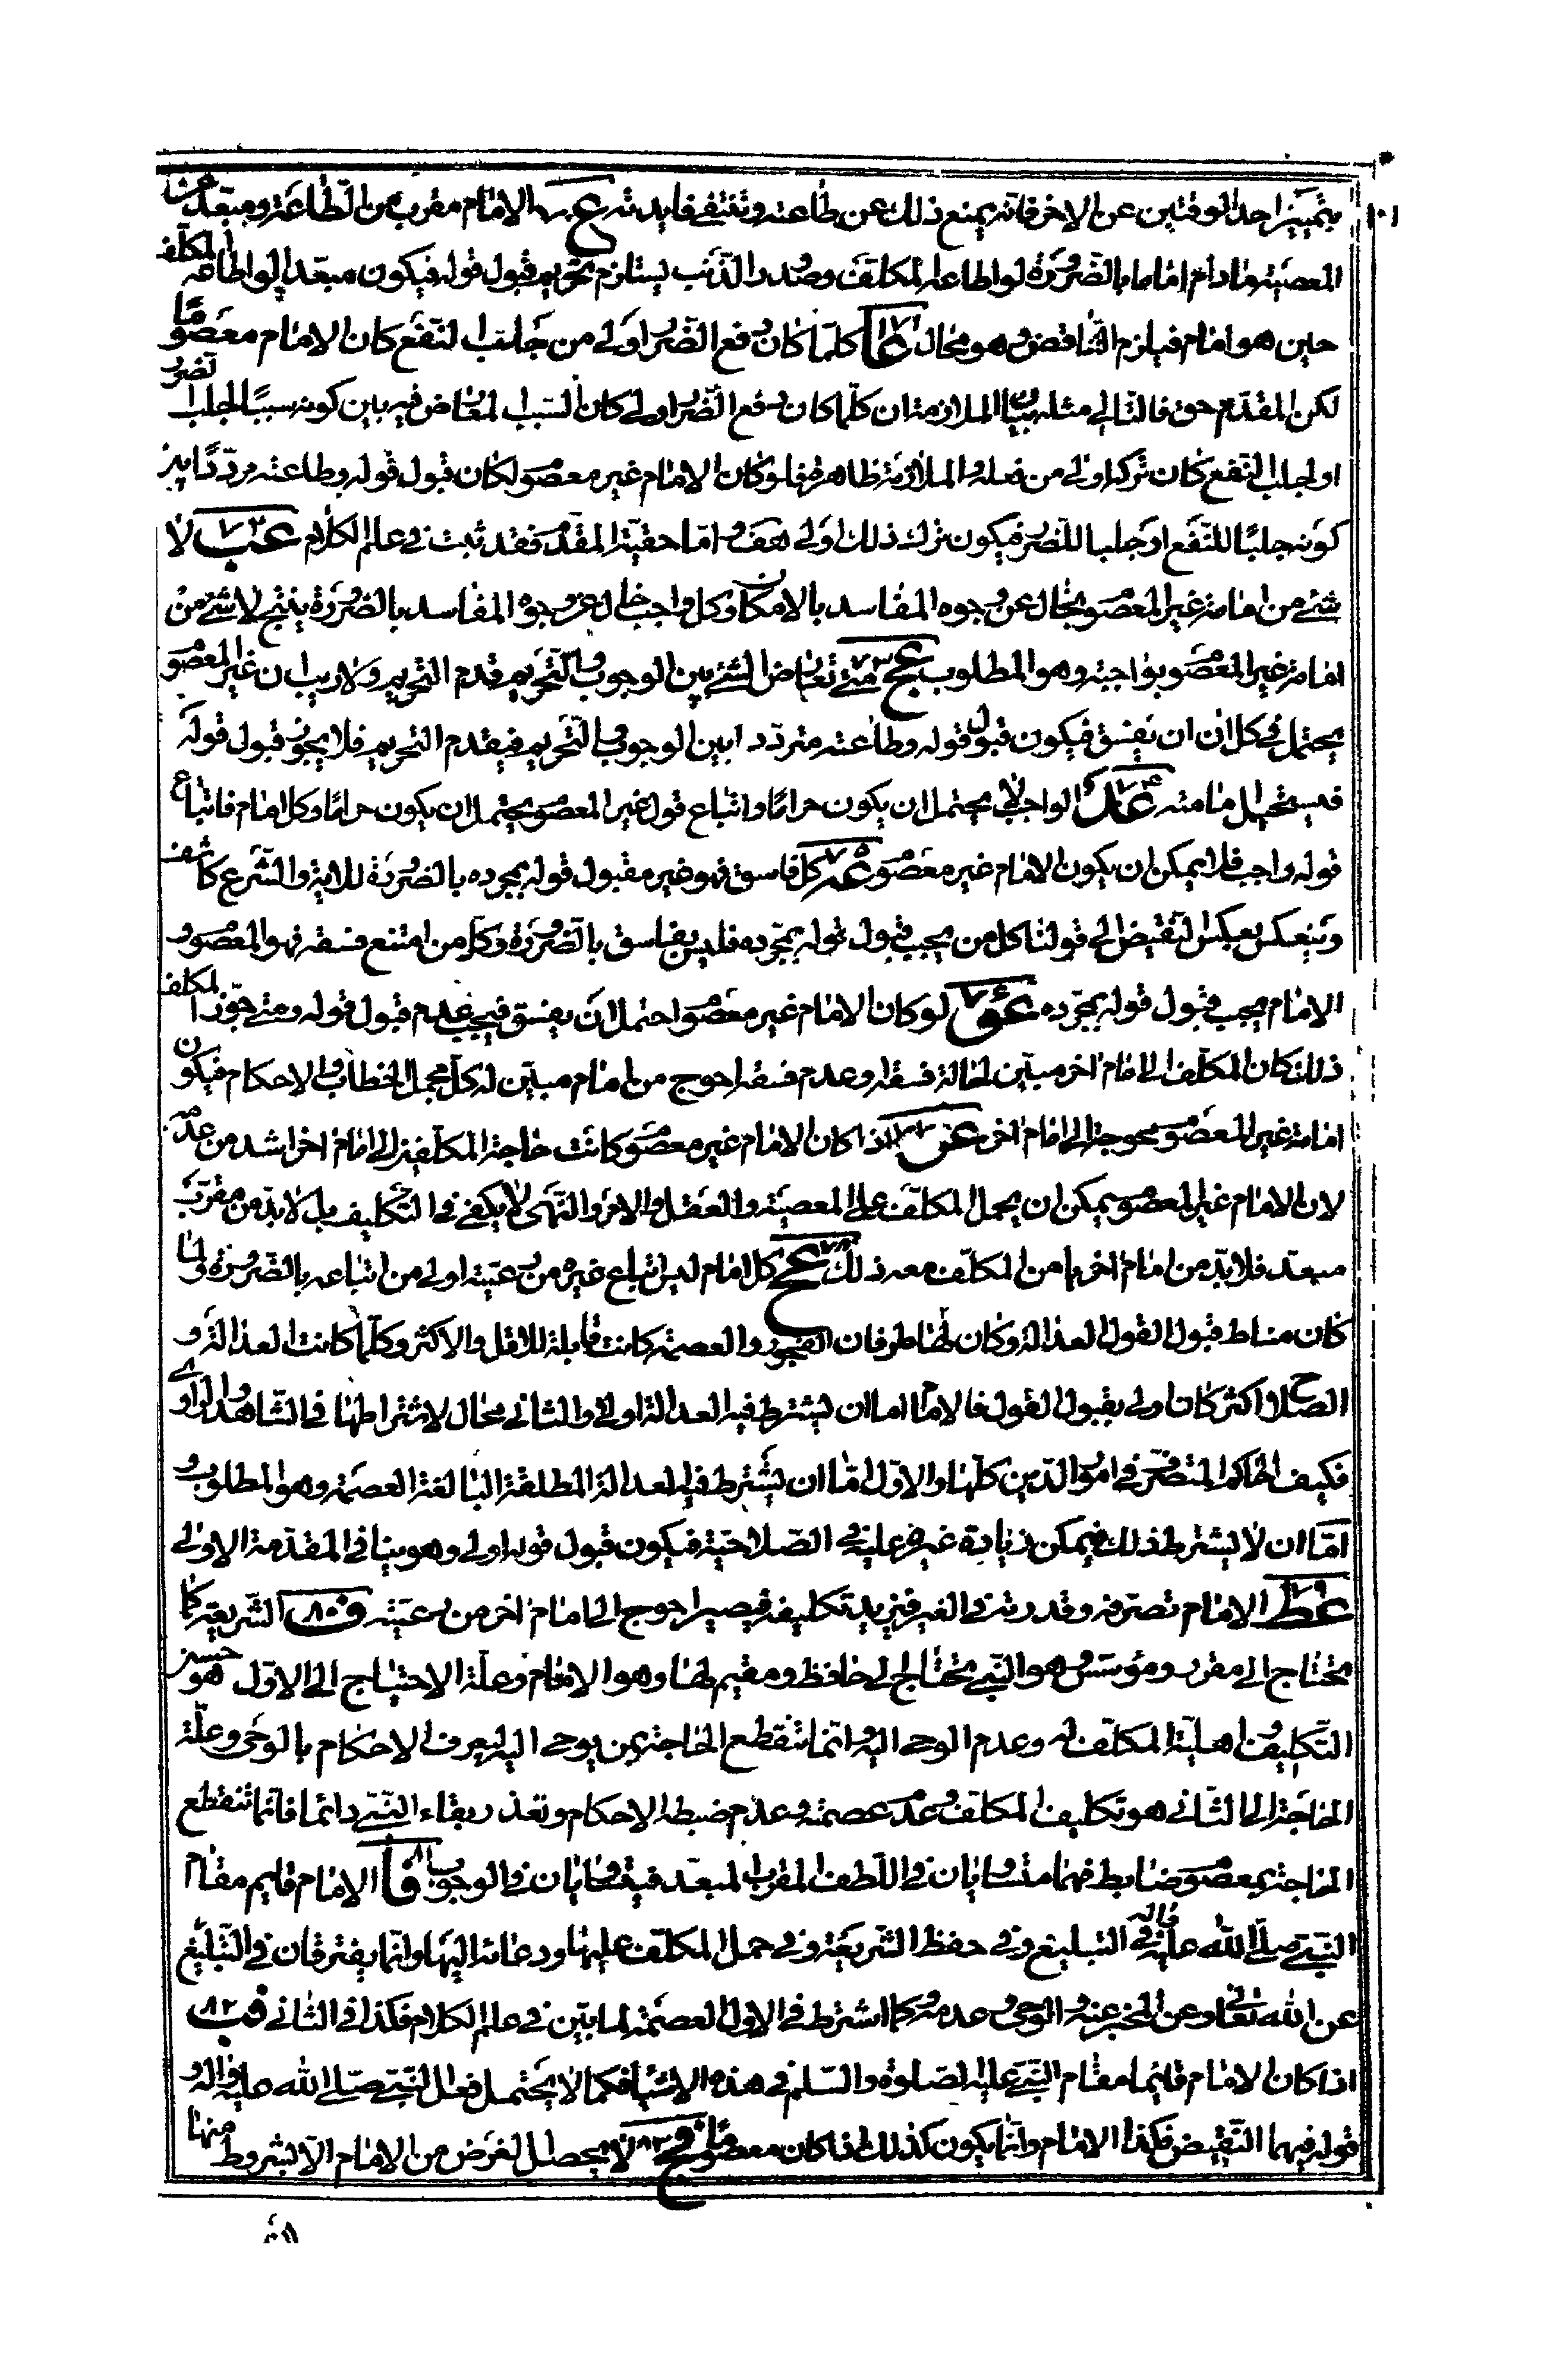 بتمييز احد الوقتين عن الاخر فانه يمنع ذلك عن طاعته وتنتفى فايدته ع ٧٠ الامام مقرب من الطاعة ومبعد عن
المعصية ما دام اماما بالضرورة لو اطاعه المكلف وصدور الذنب يستلزم تحريم قبول قوله فيكون مبعدا لو اطاعه المكلف
حين هو امام فيلزم التناقض وهو محال عا ٧١ كلما كان دفع الضرر اولى من جلب النفع كان الامام معصوما
لكن المقدم حق فالتالى مثله بيان الملازمة ان كلما كان دفع الضرر اولى كان السبب المعارض فيه بين كونه سببا لجلب ضرر
او لجلب النفع كان تركه اولى من فعله والملازمة ظاهرة فلو كان الامام غير معصوم لكان قبول قوله وطاعته مرددا بين
كونه جلبا للنفع او جلبا للضرر فيكون ترك ذلك اولى هف واما حقية المقدم فقد ثبت فى علم الكلام عب ٧٢ لا
شئ من امامة غير المعصوم بخال عن وجوه المفاسد بالامكان وكل واجب خال عن وجوه المفاسد بالضرورة ينتج لا شئ من
امامة غير المعصوم بواجبة وهو المطلوب عج ٧٣ متى تعارض الشئ بين الوجوب والتحريم قدم التحريم ولا ريب ان غير المعصوم
يحتمل فى كل ان ان يفسق فيكون قبول قوله وطاعته مترددا بين الوجوب والتحريم فيقدم التحريم فلا يجوز قبول قوله
فيستحيل امامته عد ٧٤ الواجب لا يحتمل ان يكون حراما واتباع قول غير المعصوم يحتمل ان يكون حراما وكل امام فاتباع
قوله واجب فلا يمكن ان يكون الامام غير معصوم عه ٧٥ كل فاسق فهو غير مقبول قوله بمجرده بالضرورة للاية والشرع كاشف
وينعكس بعكس النقيض الى قولنا كل من يجب قبول قوله بمجرده فليس بفاسق بالضرورة وكل من امتنع فسقه فهو المعصوم و
الامام يجب قبول قوله بمجرده عو ٧٦ لو كان الامام غير معصوم احتمل ان يفسق فيجب عدم قبول قوله ومتى جوز المكلف
ذلك كان المكلف الى امام اخر مبين لحالة فسقه وعدم فسقه احوج من امام مبين له كل مجمل الخطاب والاحكام فيكون
امامة غير المعصوم محوجة الى امام اخر عز ٧٧ اذا كان الامام غير معصوم كانت حاجة المكلفين الى امام اخر اشد من عدمه
لان الامام غير المعصوم يمكن ان يحمل المكلف على المعصية والعقل والامر والنهى لا يكفى فى التكليف بل لابد من مقرب
مبعد فلابد من امام اخر يامن المكلف معه ذلك عح ٧٨ كل امام ليس اتباع غيره من رعيته اولى من اتباعه بالضرورة ولما
كان مناط قبول القول العدالة وكان لها طرفان الفجور والعصمة كانت قابلة للاقل والاكثر وكلما كانت العدالة و
الصلاح اكثر كان اولى بقبول القول فالامام اما ان يشترط فيه العدالة اولا والثانى محال لاشتراطها فى الشاهد والراوى
فكيف الحاكم المتصرف فى امور الدين كلها والاول اما ان يشترط فيه العدالة المطلقة البالغة العصمة وهو المطلوب و
اما ان لا يشترط ذلك فيمكن زيادة غيره عليه فى الصلاحية فيكون قبول قوله اولى وهو ينافى المقدمة الاولى
عط ٧٩ الامام تصرفه وقدرته فى الغير فتزيد تكليفه فيصير احوج الى امام اخر من رعيته ف ٨٠ الشريعة كما
تحتاج الى مقرر ومؤسس وهو النبى تحتاج الى حافظ ومقيم لها وهو الامام وعلة الاحتياج الى الاول هو حسن
التكليف واهلية المكلف له وعدم الوحى اليه وانما تنقطع الحاجة بمن يوحى اليه ليعرف الاحكام بالوحى وعلة
الحاجة الى الثانى هو تكليف المكلف وعدم عصمته وعدم ضبطه الاحكام وتعذر بقاء النبى دائما فانما تنقطع
الحاجة بمعصوم ضابط فهما متساويان فى اللطف المقرب المبعد فيتساويان فى الوجوب فا ٨١ الامام قايم مقام
النبى صلى الله عليه واله فى التبليغ وفى حفظ الشريعة وفى حمل المكلف عليها ودعائه اليها وانما يفترقان فى التبليغ
عن الله تعالى وعن المخبر عنه والوحى وعدمه وكما اشترط فى الاول العصمة لما بين فى علم الكلام فكذا فى الثانى فب ٨٢
اذا كان الامام قايما مقام النبى عليه الصلوة والسلم فى هذه الاشياء فكما لا يحتمل فعل النبى صلى الله عليه واله و
قوله فيهما النقيض فكذا الامام وانما يكون كذلك اذا كان معصوما فج ٨٣ لا يحصل الغرض من الامام الا بشروط منها